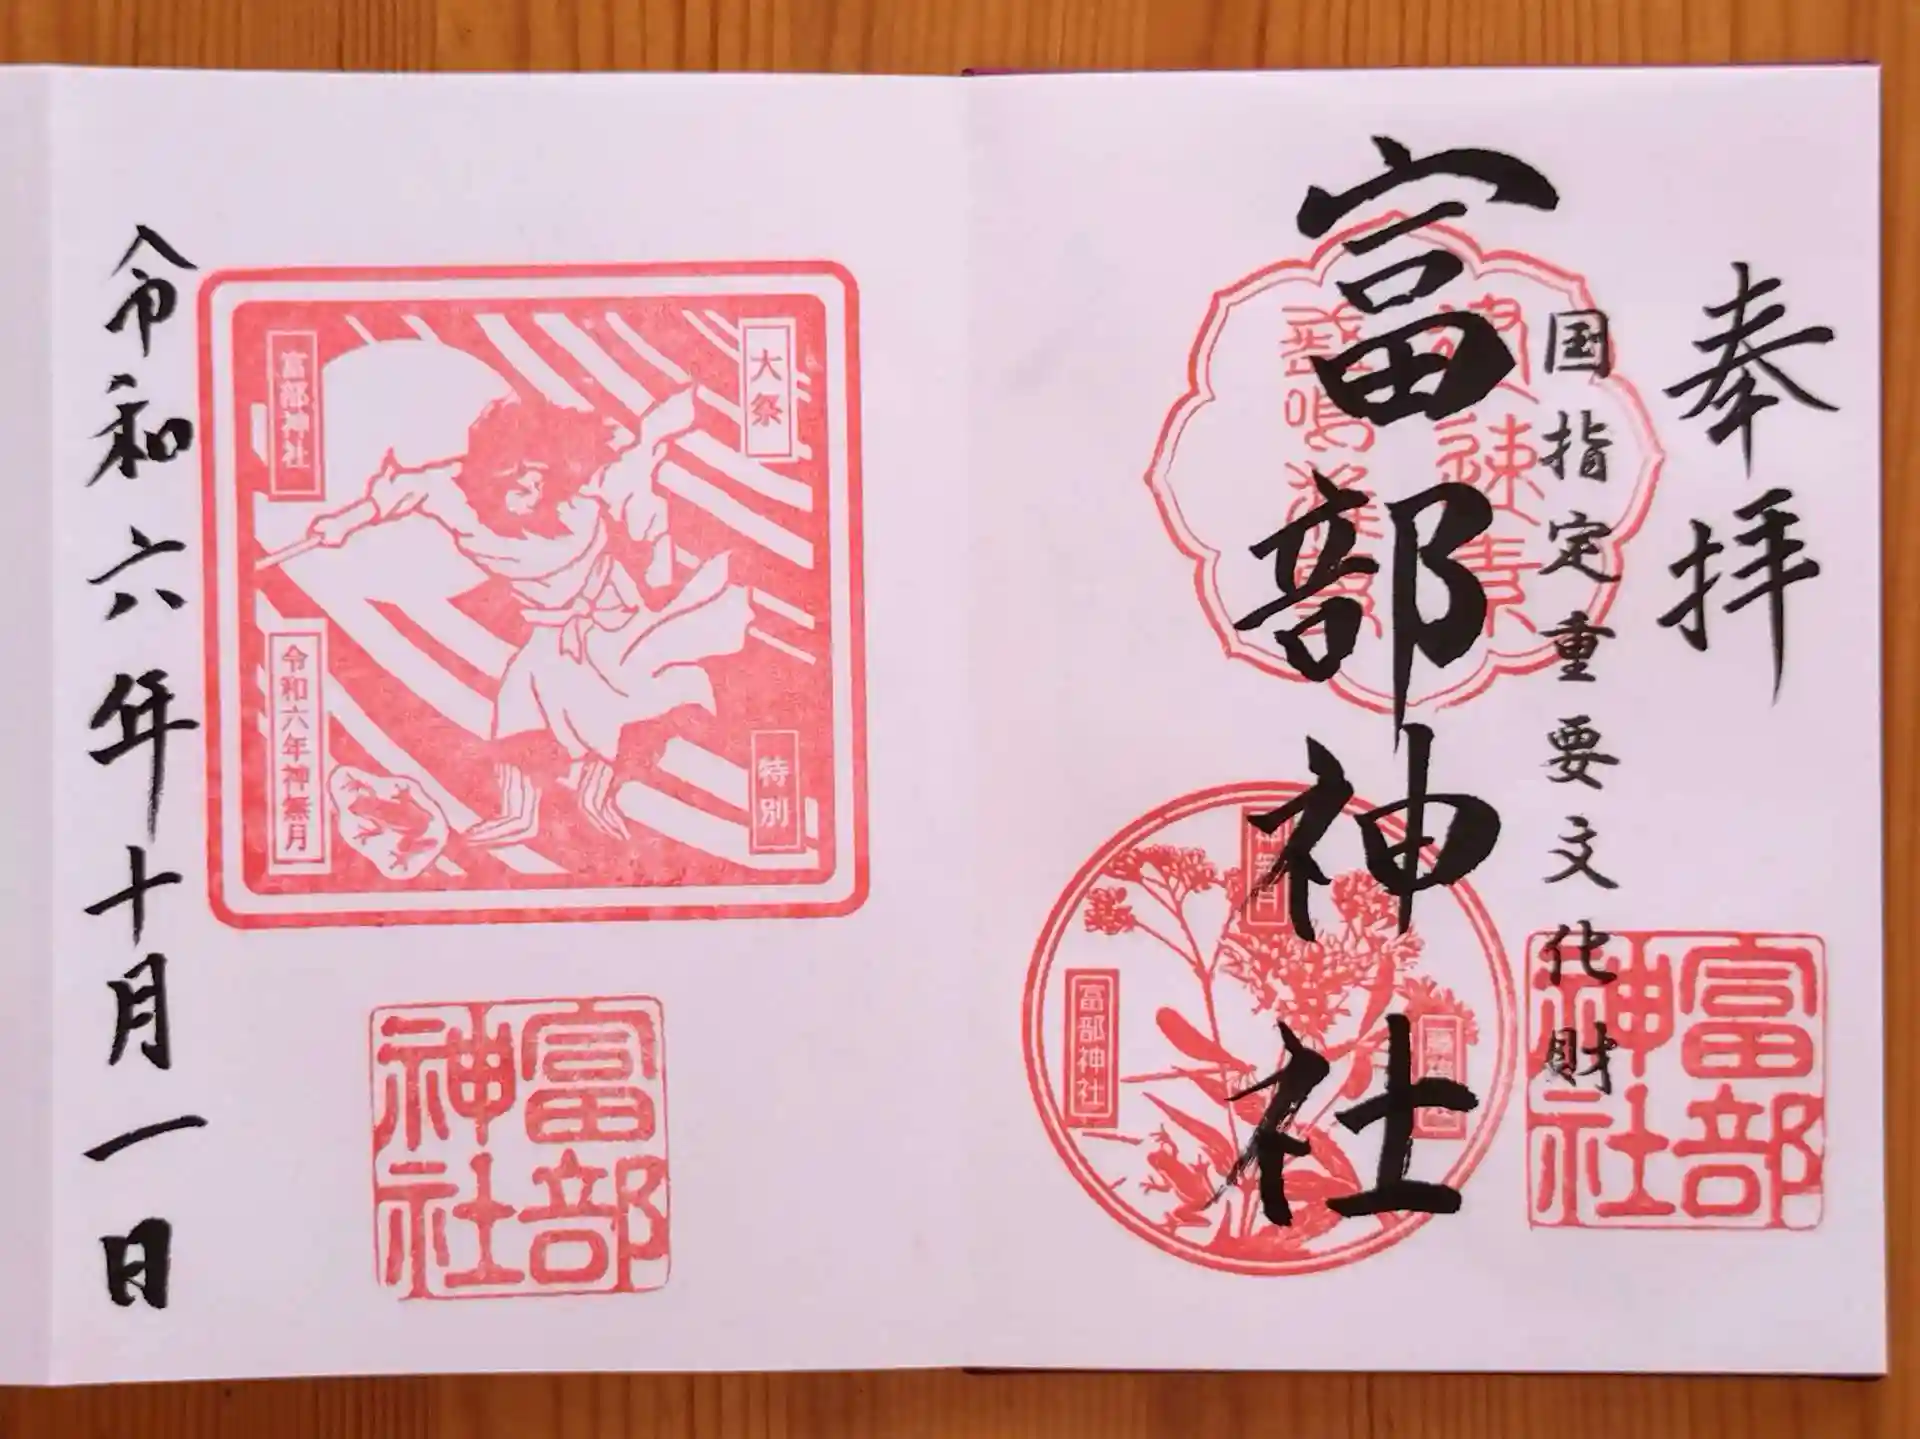 奉拝
国指定重要文化財
富部神社
富部
神社
神無月
富部神社
大祭
特別
富部神社
令和六年神無月
富部
神社
令和六年十月一日